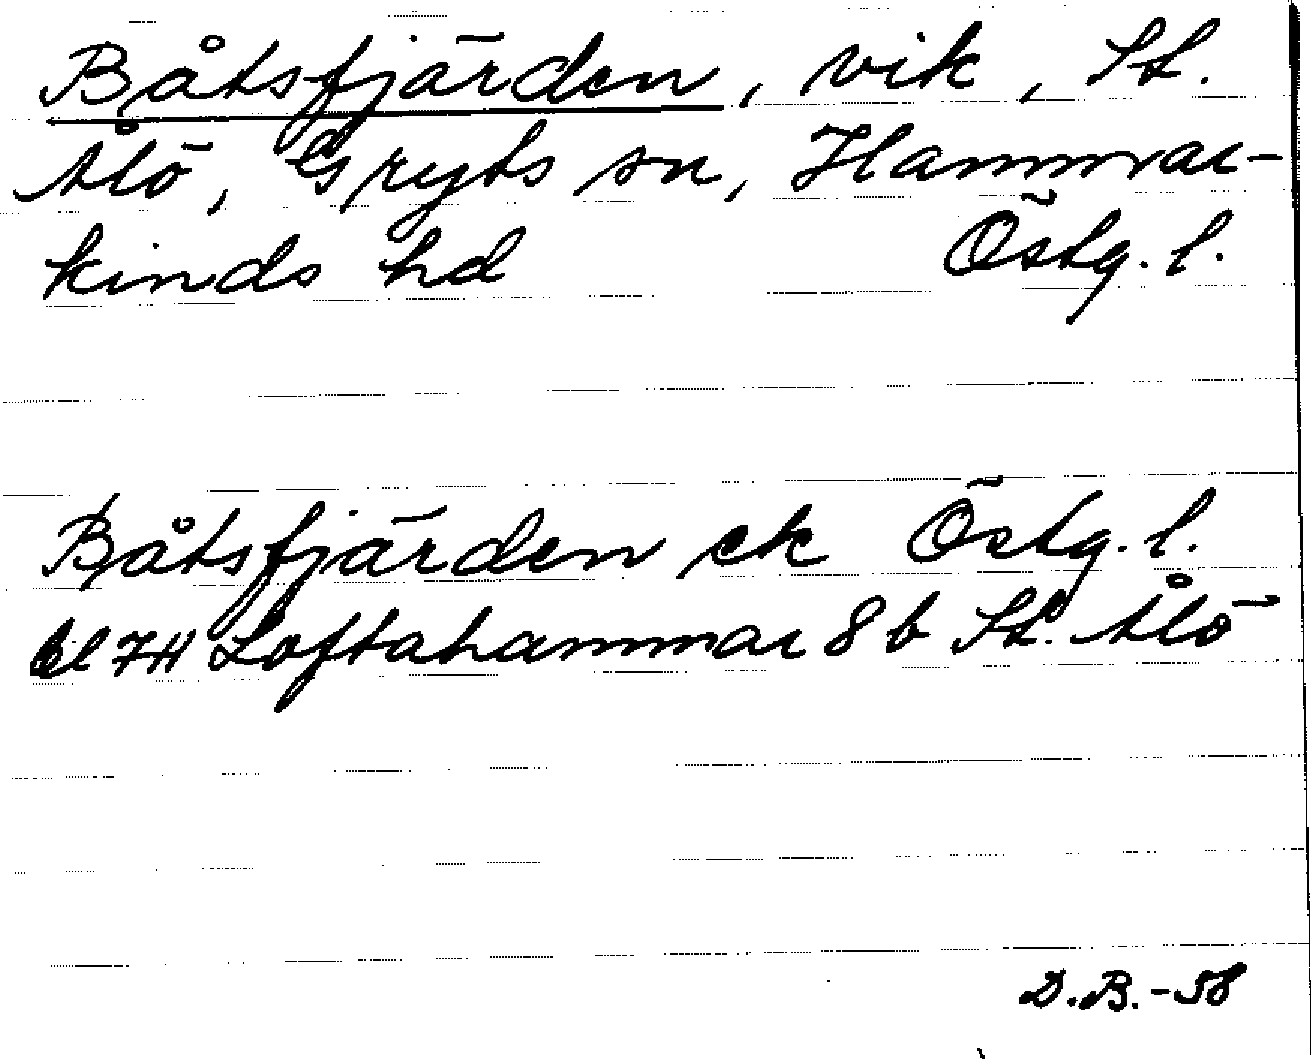 Båtsfjärden, vik, St.
Ålö, Gryts sn, Hammar-
kinds hd Östg. l.
Båtsfjärden ek Östg. l.
bl 7H Loftahammar 8b St. Ålö
D.B.-58